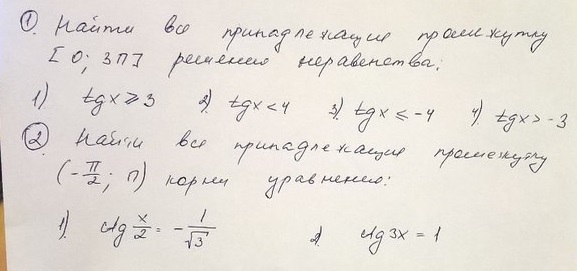 ① Найти все принадлежащие промежутку
[0; 3П] решения неравенства:
1) tgx ⩾ 3 2) tgx < 4 3) tgx ≤ -4 4) tgx > -3
② Найти все принадлежащие промежутку
(-π/2; П) корни уравнения:
1) ctg x/2 = - 1/√3 2) ctg 3x = 1